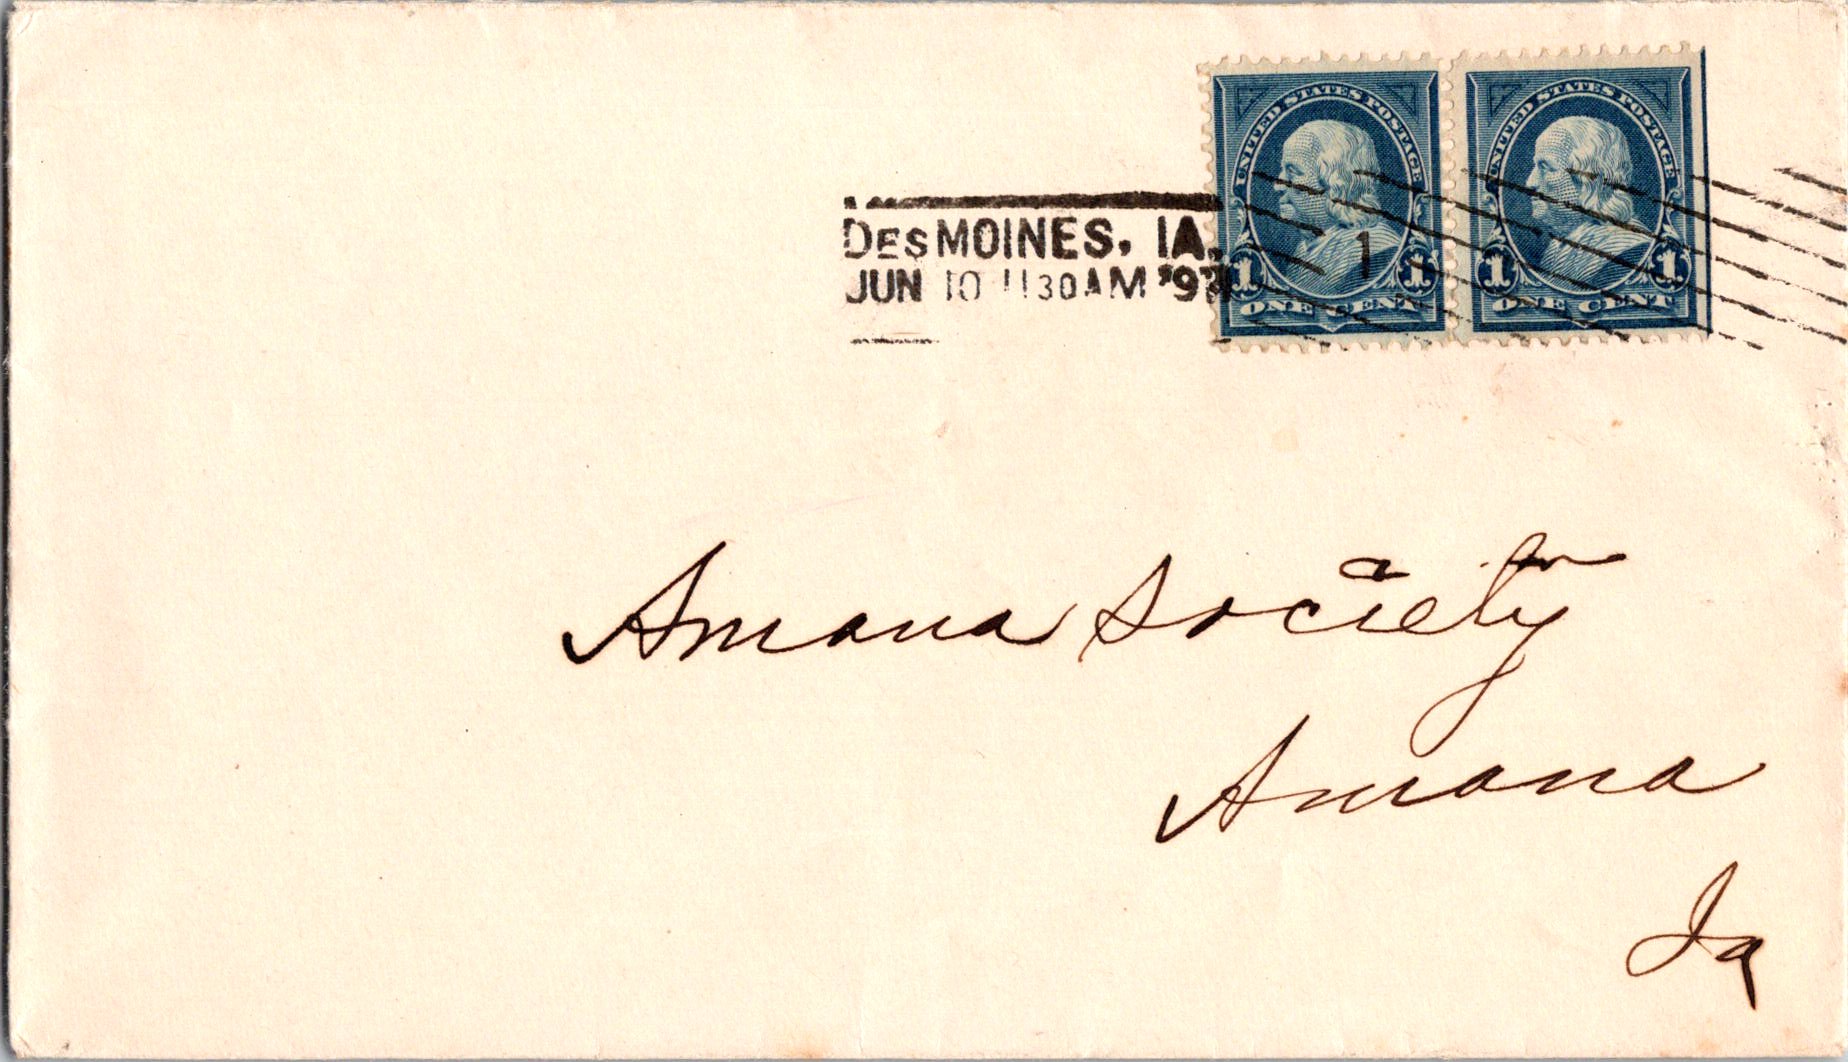 UNITED STATES POSTAGE
1 1
ONE CENT
UNITED STATES POSTAGE
1 1
ONE CENT
DES MOINES, IA.
JUN 10 1130AM '97
1
Amana Society
Amana
Ia